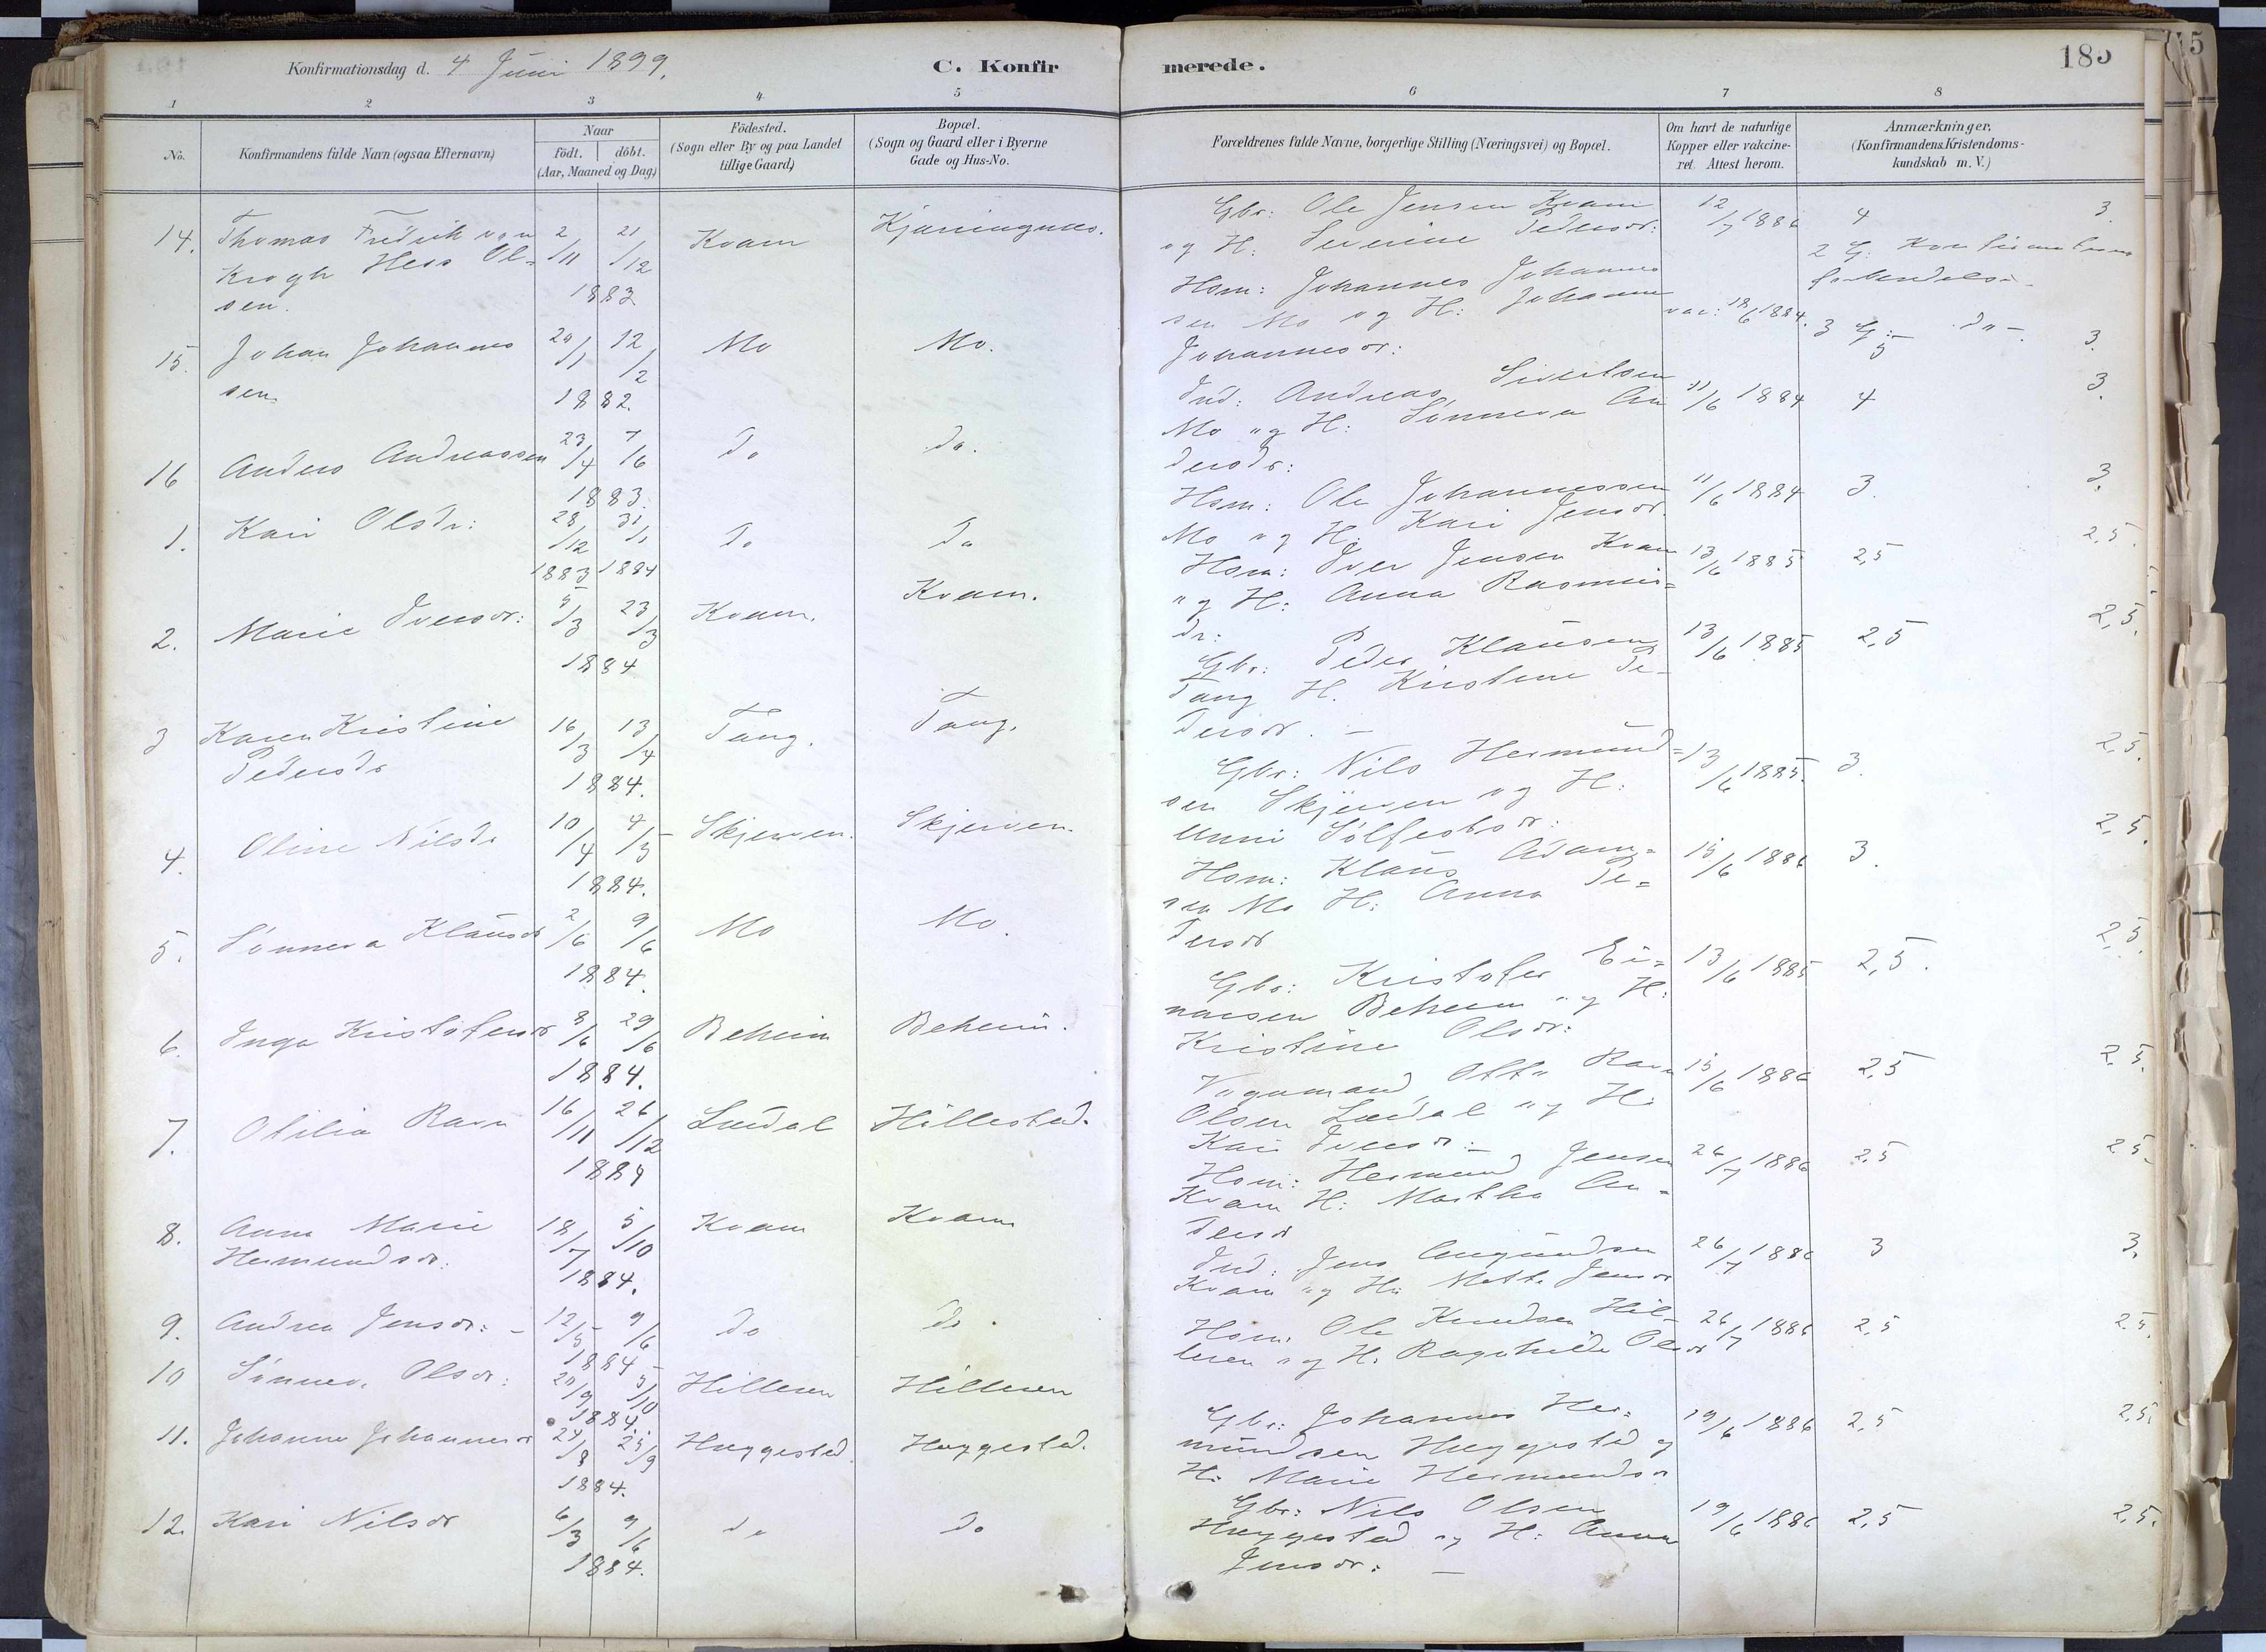 Konfirmationsdag d. 4 Juni 1899.
C. Konfirmerede.
185
1 2 3 4 5 6 7 8
No.
Konfirmandens fulde Navn (ogsaa Efternavn)
Naar
födt. döbt.
(Aar, Maaned og Dag)
Födested.
(Sogn eller By og paa Landet
tillige Gaard)
Bopæl.
(Sogn og Gaard eller i Byerne
Gade og Hus-No.
Forældrenes fulde Navne, borgerlige Stilling (Næringsvei) og Bopæl.
Om havt de naturlige
Kopper eller vakcine-
ret. Attest herom.
Anmærkninger,
(Konfirmandens Kristendoms-
kundskab m. V.)
14. Thomas Fredrik von 2/11 21/12 Kvam
Krogh Hess Ol=
sen. 1883
Gbr: Ole Jensen Kvam 12/7 1886 4 3.
og H: Severine Pedersdr: 2 G:
15. Johan Johannes 20/1 12/2 Mo Mo.
sen. 1882.
Hsm: Johannes Johannes
sen Mo og H: Johanne vac: 18/6 1884. 3 G: do -.
Johannesdr: 5 3.
16 Anders Andreassen 23/4 7/6 do do.
1883.
Ind: Andreas Sivertsen 11/6 1884 4 3.
Mo og H: Sønneva An
dersdr:
1. Kari Olsdr: 28/12 31/1 do do
1883 1884
Hsm: Ole Johannessen 11/6 1884 3. 3.
Mo og H: Kari Jensdr.
2. Marie Iversdr: 5/3 23/3 Kvam. Kvam.
1884
Hsm: Iver Jensen Kvam 13/6 1885 2,5 2,5.
og H: Anna Rasmus=
dr:
3 Karen Kristine 16/3 13/4 Tang. Tang.
Pedersdr 1884.
Gbr: Peder Klausen 13/6 1885 2,5 2,5.
Tang H. Kristine Pe-
dersdr. -
4. Oline Nilsdr 10/4 4/5 Skjerven. Skjerven.
1884.
Gbr: Nils Hermund= 13/6 1885. 3. 2,5.
sen Skjerven og H:
Unni Sølfestsdr:
5. Sønneva Klausdr 2/6 9/6 Mo Mo.
1884.
Hsm: Klaus Adam= 15/6 1886 3. 2,5.
sen Mo H: Anna Pe=
dersdr
6. Inga Kristofersdr 8/6 29/6 Beheim Beheim.
1884.
Gbr: Kristofer Ei= 13/6 1885 2,5. 2,5.
narsen Beheim og H:
Kristine Olsdr:
7. Otilia Ravn 16/11 26/12 Lærdal Hillestad.
1884
Vognmand Otto Ravn 15/6 1886 2,5 2,5.
Olsen Lærdal og H:
Kari Iversdr: -
8. Anna Marie 18/7 5/10 Kvam Kvam
Hermundsdr. 1884.
Hsm: Hermund Jensen 26/7 1886 2,5 2,5.
Kvam H: Martha An-
dersdr
9. Andrea Jensdr: - 12/5 9/6 do do.
1884
Ind: Jens Amundsen 26/7 1886 3 3.
Kvam og H: Mette Jensdr
10 Sønneva Olsdr: 20/9 5/10 Hilleren Hilleren
1884.
Hsm. Ole Knudsen Hil- 26/7 1886 2,5 2,5.
leren og H: Ragnhilde Olsdr
11. Johanne Johannesdr 24/8 25/9 Hæggestad. Hæggestad.
1884.
Gbr: Johannes Her= 19/6 1886 2,5 2,5.
mundsen Hæggestad og
H: Marie Hermundsdr
12. Kari Nilsdr 6/3 9/6 do do
1884.
Gbr: Nils Olsen 19/6 1886 2,5 2,5.
Hæggestad og H: Anna
Jensdr: -